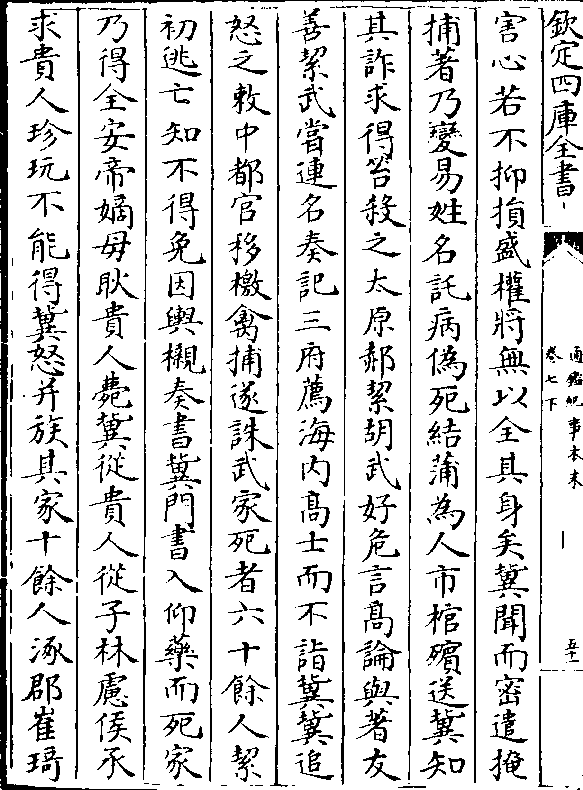 欽定四庫全書
通鑑紀事本末
卷七下
五十一
害心若不抑損盛權將無以全其身矣冀聞而密遣掩
捕著乃變易姓名託病偽死結蒲為人市棺殯送冀知
其詐求得笞殺之太原郝絜胡武好危言髙論與著友
善絜武嘗連名奏記三府薦海内髙士而不詣冀冀追
怒之敕中都官移檄禽捕遂誅武家死者六十餘人絜
初逃亡知不得免因輿櫬奏書冀門書入仰藥而死家
乃得全安帝嫡母耿貴人薨冀從貴人從子林慮侯承
求貴人珍玩不能得冀怒并族其家十餘人涿郡崔琦